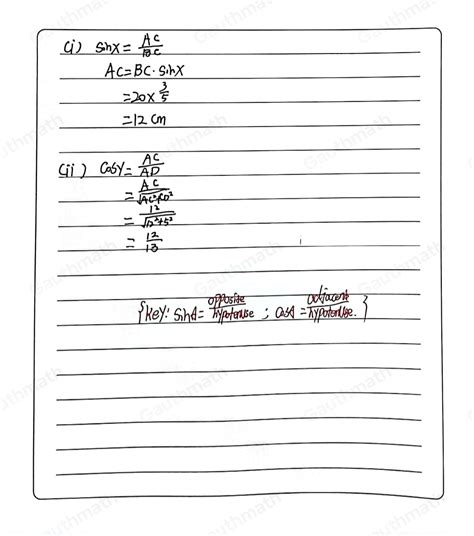 (i) sinx = AC/BC
AC = BC · sinx
= 20 × 3/5
= 12 cm
(ii) cosy = AC/AD
= AC/√AC²+CD²
= 12/√12²+5²
= 12/13
{Key: sinA = opposite/hypotenuse ; cosA = adjacent/hypotenuse. }
Gauthmath